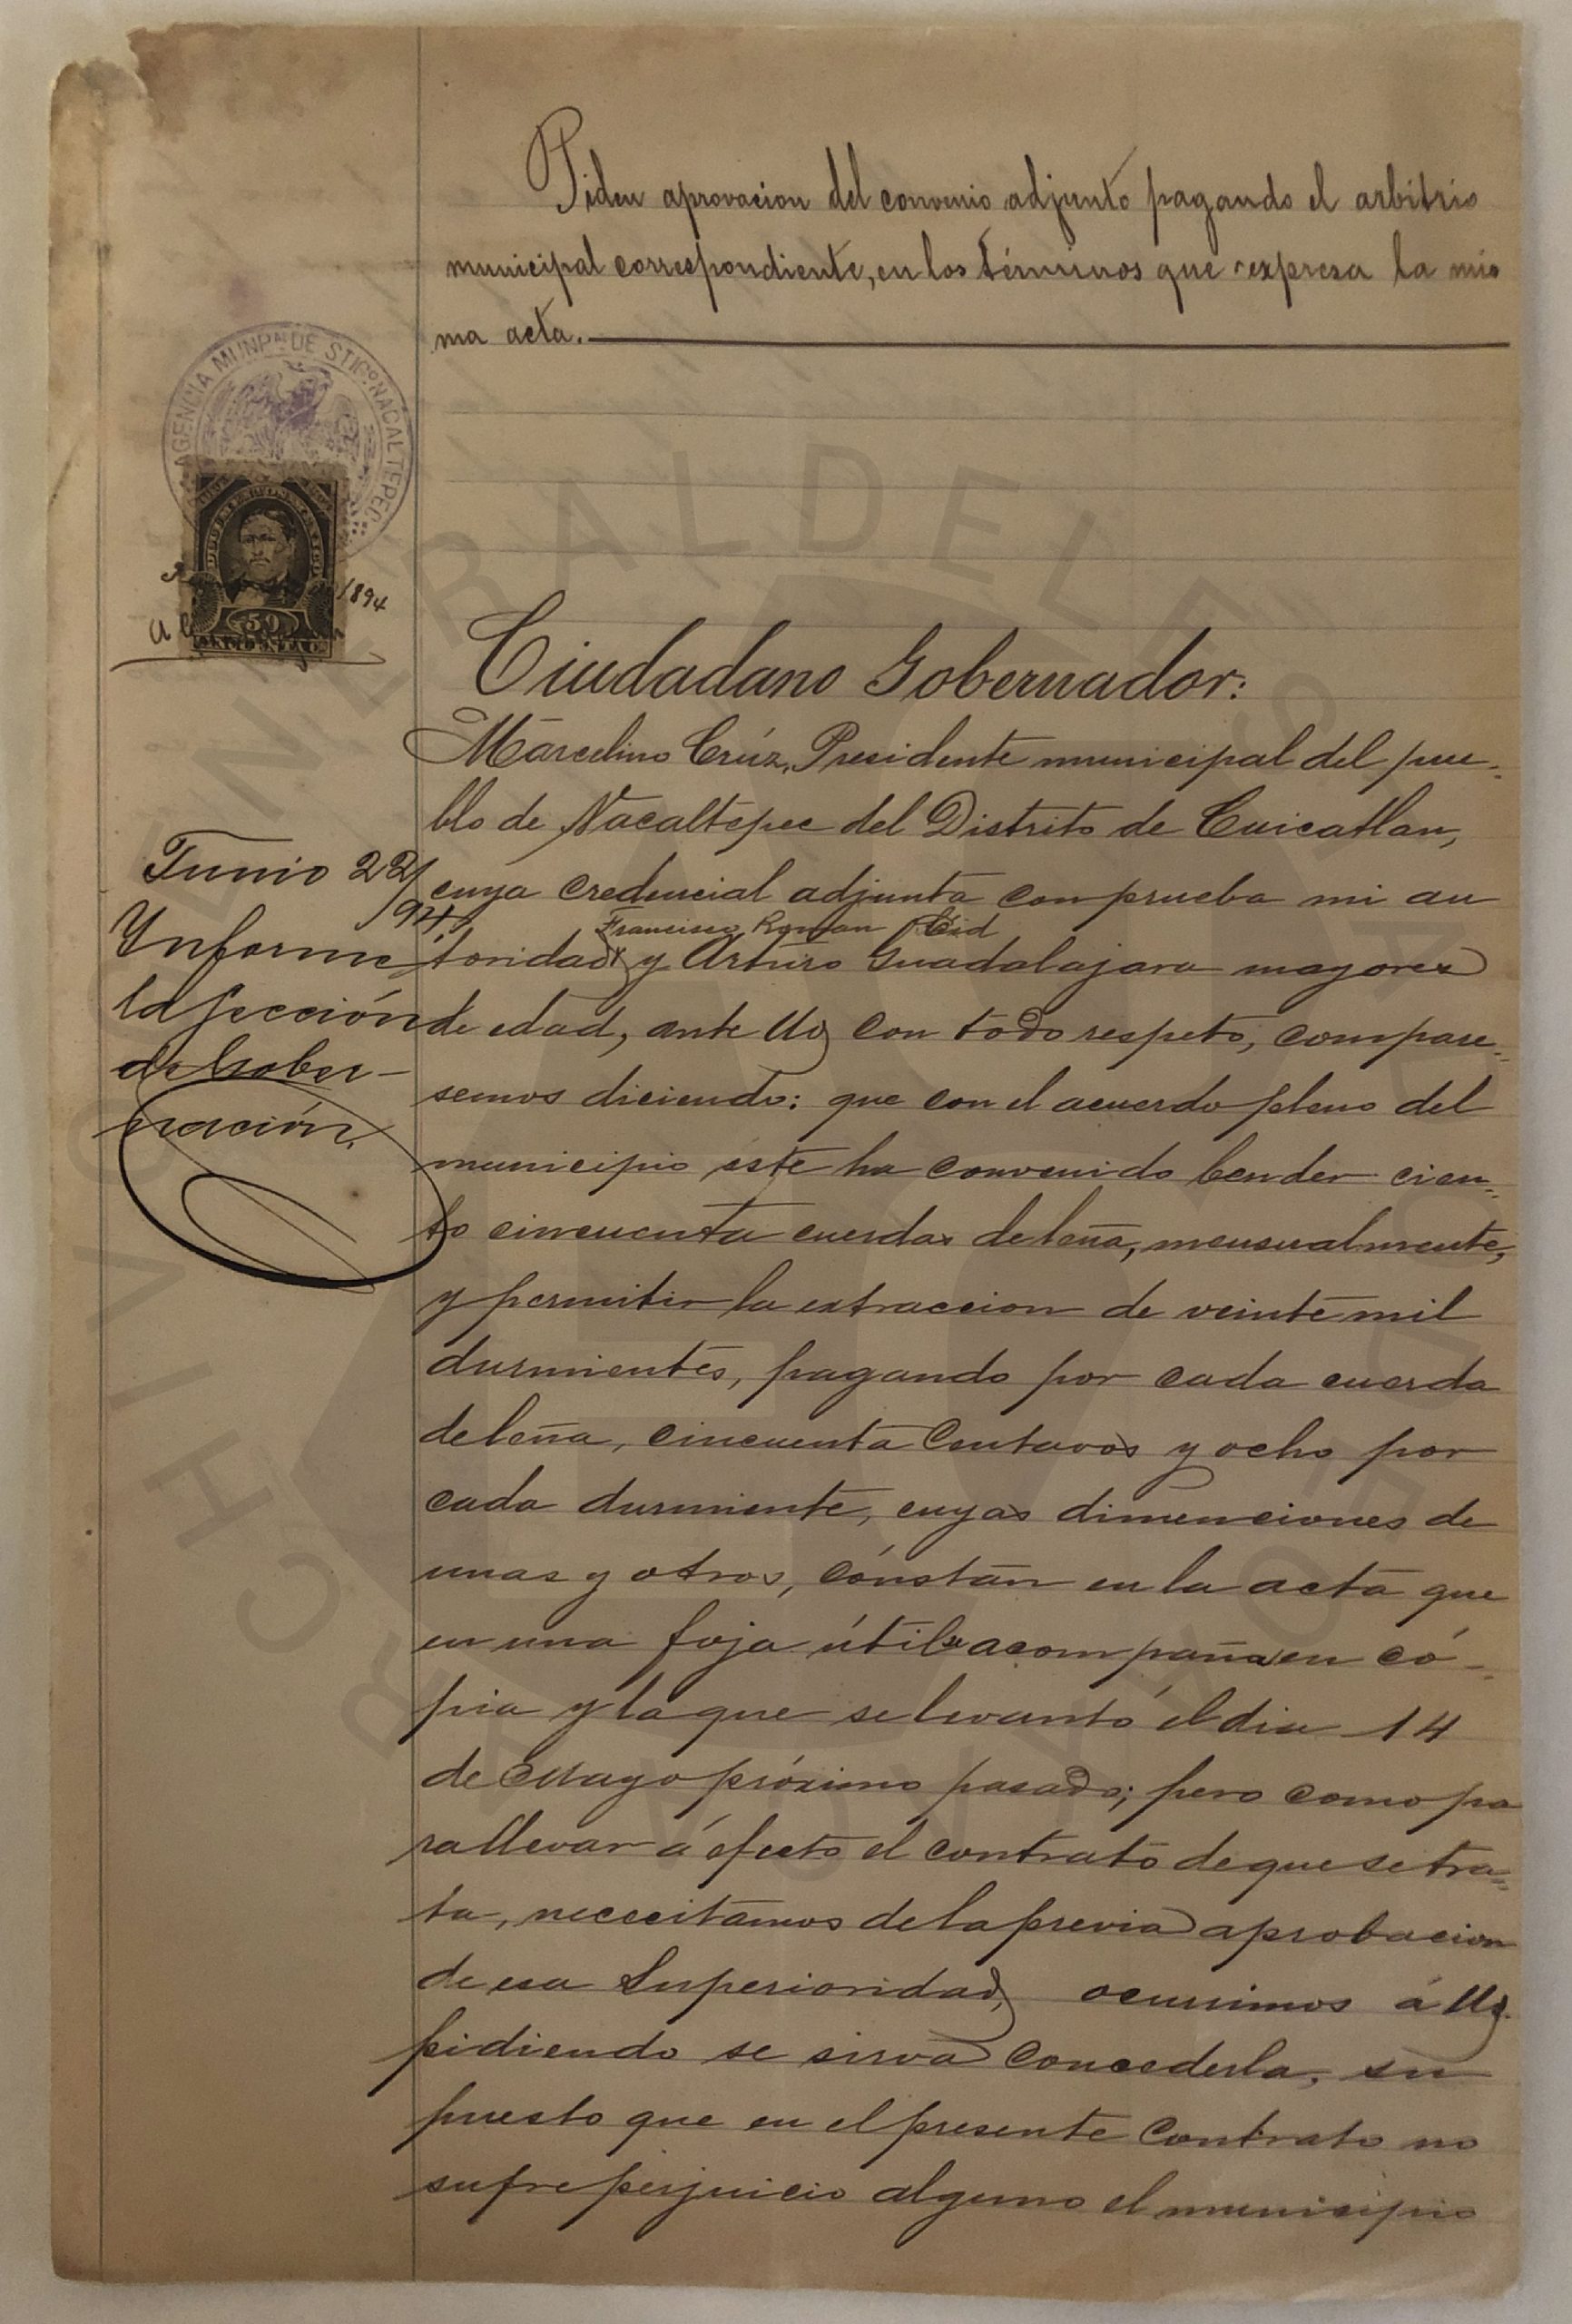 Piden aprovacion del convenio adjunto pagando el arbitrio
municipal correspondiente, en los términos que expresa la mis
ma acta.
AGENCIA MUNPAL DE STIGO NACALTEPEC
1894
50
Ciudadano Gobernador:
Marcelino Crúz, Presidente municipal del pue-
blo de Nacaltepec del Distrito de Cuicatlan,
cuya credencial adjunta comprueba mi au
Francisco Roman Cid
toridad y Arturo Guadalajara mayores
de edad, ante Ud con todo respeto, compare-
semos diciendo: que con el acuerdo pleno del
municipio este ha convenido bender cien-
to cincuenta cuerdas de leña, mensualmente,
y permitir la extraccion de veinte mil
durmientes, pagando por cada cuerda
de leña, cincuenta Centavos y ocho por
cada durmiente, cuyas dimenciones de
unas y otros, cónstan en la acta que
en una foja útil acompaña en có-
pia y la que se levantó el dia 14
de Mayo próximo pasado; pero como pa
ra llevar á efecto el contrato de que se tra-
ta, nececitamos de la previa aprobacion
de esa Superioridad, ocurrimos á Ud.
pidiendo se sirva concederla, su
puesto que en el presente Contrato no
sufre perjuicio alguno el municipio
Junio 22/94.
Informe
la sección
de Gober-
nación.
ARCHIVO GENERAL DEL ESTADO DE OAXACA